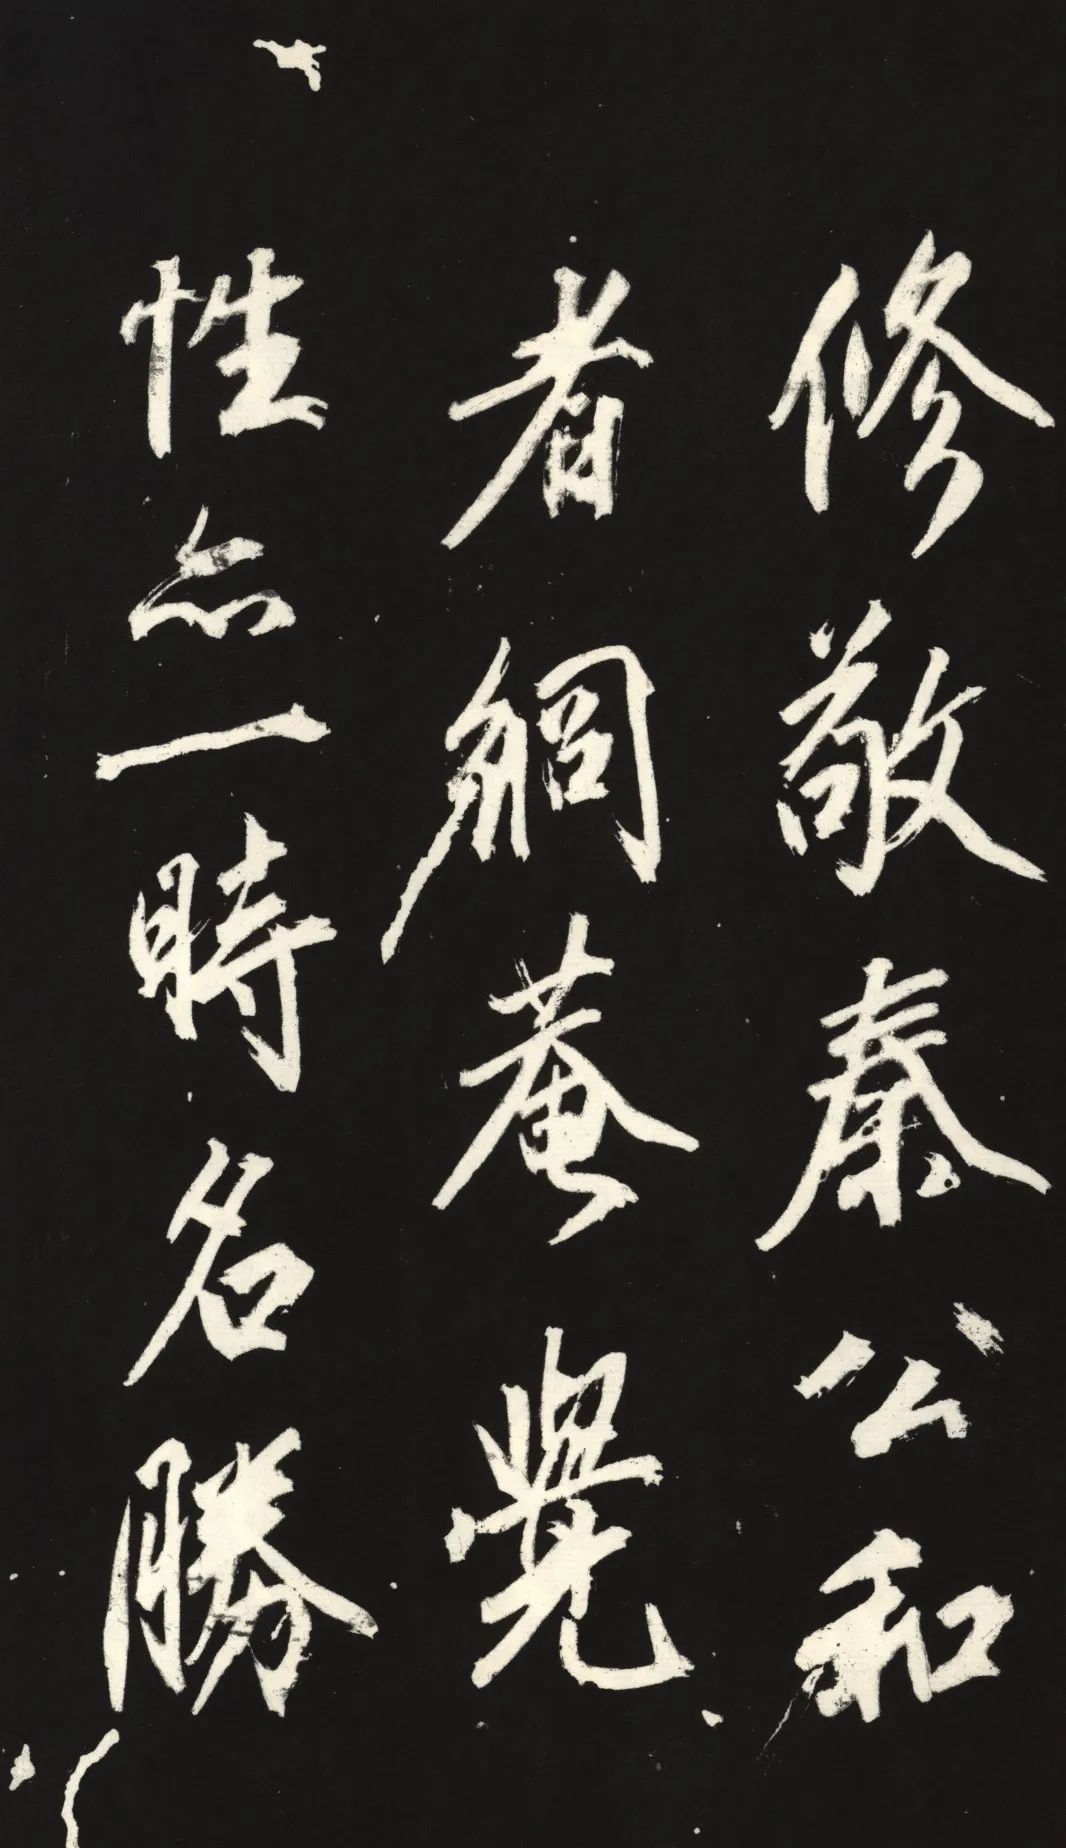 修敬秦公和
者綱菴覺
性亦一時名勝